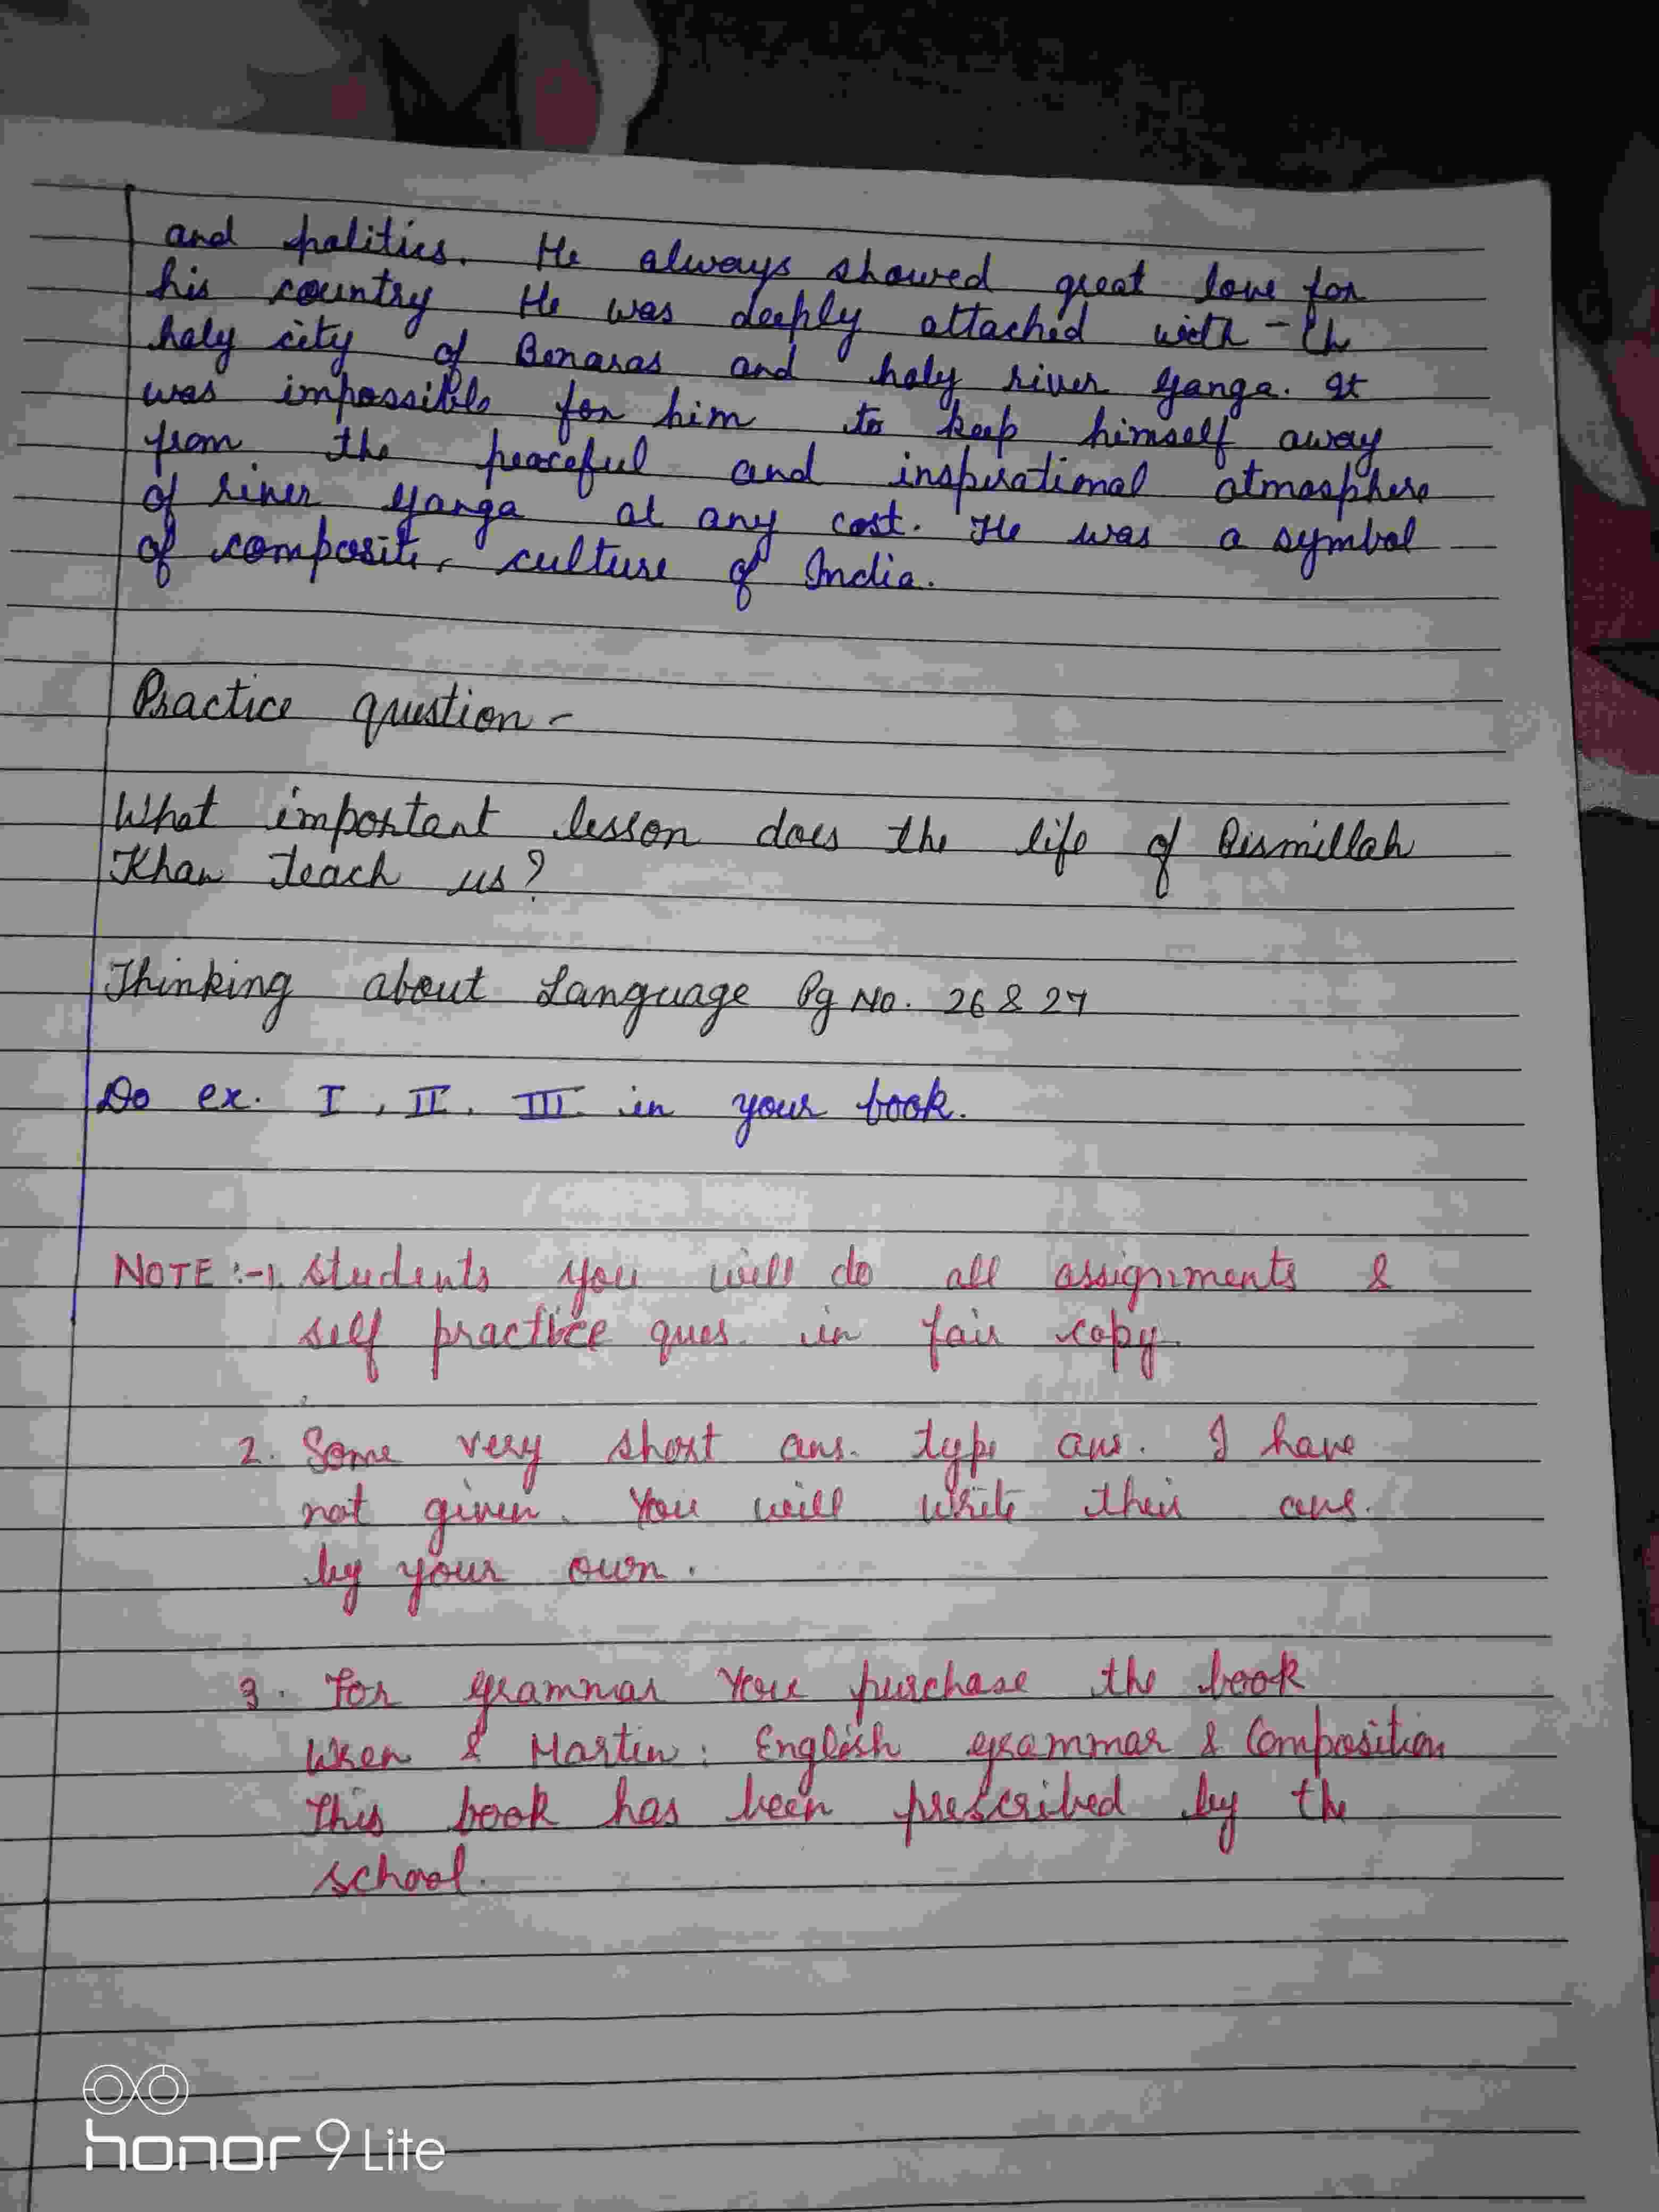 and politics. He always showed great love for
his country He was deeply attached with - th
holy city of Benaras and holy river Ganga. It
was impossible for him to keep himself away
from the peaceful and inspirational atmosphere
of river Ganga at any cost. He was a symbol
of composite culture of India.
Practice question -
What important lesson does the life of Bismillah
Khan teach us?
Thinking about Language Pg No. 26 & 27
Do ex. I, II, III in your book.
NOTE :-1. Students you will do all assignments &
self practice ques. in fair copy.
2. Some very short ans. type ans. I have
not given. You will write their ans.
by your own.
3. For grammar you purchase the book
Wren & Martin: English grammar & Composition
This book has been prescribed by the
school.
honor 9 Lite